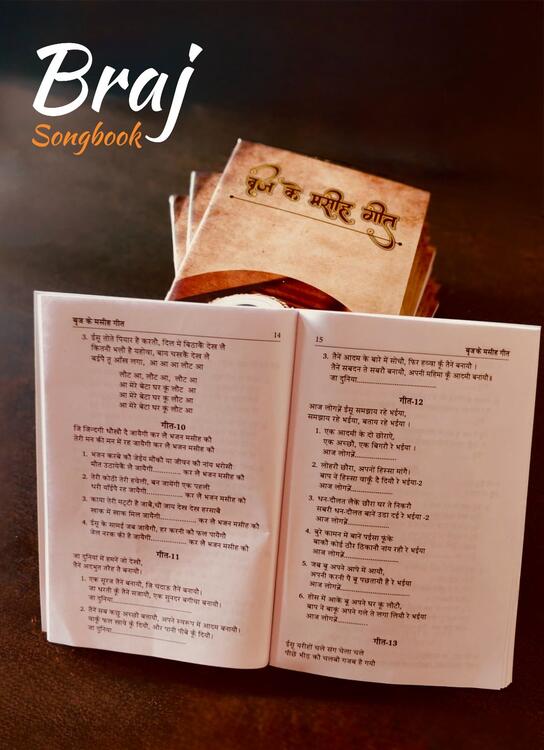 Braj
Songbook
बृज के मसीह गीत
बृज के मसीह गीत
14
3. ईसू तोते पियार हे करतौ, दिल में बिठाकेँ देख लै
कितनौ भलौ है यहोवा, बाय चस्वकेँ देख लै
बईपै तू आँख लगा, आ आ आ लौट आ
लौट आ, लौट आ, लौट आ
आ मेरे बेटा घर कूँ लौट आ
आ मेरे बेटा घर कूँ लौट आ
आ मेरे बेटा घर कूँ लौट आ
गीत-10
जि जिन्दगी धोखौ दै जायगी कर लै भजन मसीह कौ
तेरी मन की मन में रह जायगी कर लै भजन मसीह कौ
1. भजन करबे की जेईय मौकौ या जीवन कौ नांय भरोसौ
मौत उठायकेँ लै जायैगी............ कर लै भजन मसीह कौ
2. तेरी कोठी तेरी हवेली, बन जायेगी एक पहली
धरी यॉईपै रह जायैगी............ कर लै भजन मसीह कौ
3. काया तेरी मट्टी है जाबे,चौं जाय देख देख हरसाबै
खाक में खाक मिल जायैगी............ कर लै भजन मसीह कौ
4. ईसू के सामई जब जायैगौ, हर करनी कौ फल पायैगौ
जेल नरक की है जायैगी............ कर लै भजन मसीह कौ
गीत-11
जा दुनियां में हमनें जो देखौ,
तैनें अदभुत तरेह तै बनायौ।
1. एक सूरज तैनें बनायौ, जि चंदाऊ तैनें बनायौ।
जा धरती कूँ तैनें सजायौ, एक सुन्दर बगीचा बनायौ।
जा दुनियां............
2. तैनें सब कछु अच्छौ बतायौ, अपने स्वरूप में आदम बनायौ।
वाकूँ फल खाबे कूँ दियौ, और पानी पीबे कूँ दियौ।
जा दुनियां............
15
बृजके मसीह गीत
3. तैनें आदम के बारे में सोचौ, फिर हव्वा कूँ तैनें बनायौ।
तैनें सबदन ते सबरौ बनायौ, अपनी महिमा कूँ आदमी बनायौ॥
जा दुनियां............
गीत-12
आज लोगन्नें ईसू समझाय रहे भईया,
समझाय रहे भईया, बताय रहे भईया।
1. एक आदमी के दो छोराऐ,
एक अच्छौ, एक बिगरौ रे भईया।
आज लोगन्नें............
2. लोहरौ छौरा, अपनों हिस्सा मांगै।
बाप नें हिस्सा वाकूँ दै दियौ रे भईया-2
आज लोगन्नें............
3. धन-दौलत लैके छोरा घर ते निकरौ
सबरी धन-दौलत बानें उडा दई रे भईया-2
आज लोगन्नें............
4. बुरे कामन में बानें पईसा फूंके
बाकौ कोई ठौर ठिकानौ नांय रहौ रे भईया
आज लोगन्नें............
5. जब बू अपने आपे में आयौ,
अपनी करनी पै बू पछतायौ है रे भईया
आज लोगन्नें............
6. होस में आके बू अपने घर कूँ लौटौ,
बाप नें बाकूँ अपने गले ते लगा लियौ रे भईया
आज लोगन्नें............
गीत-13
ईसू यरीहो चले संग चेला चले
पीछे भीड़ कौ चलबो गजब है गयौ